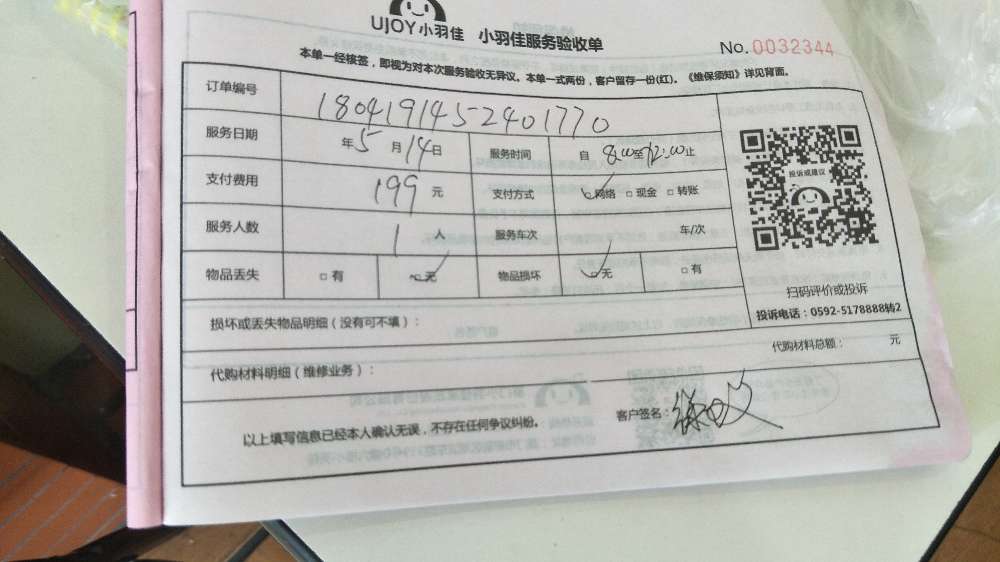 UJOY小羽佳 小羽佳服务验收单
No.0032344
本单一经核签，即视为对本次服务验收无异议。本单一式两份，客户留存一份(红)。《维保须知》详见背面。
订单编号 1804191452401770
服务日期 年5月14日 服务时间 自8:00至12:00止
支付费用 199元 支付方式 网络 现金 转账
服务人数 1人 服务车次 车/次
物品丢失 有 无 物品损坏 无 有
投诉或建议
扫码评价或投诉
投诉电话：0592-5178888转2
损坏或丢失物品明细（没有可不填）：
代购材料明细（维修业务）：
代购材料总额： 元
以上填写信息已经本人确认无误，不存在任何争议纠纷。
客户签名：